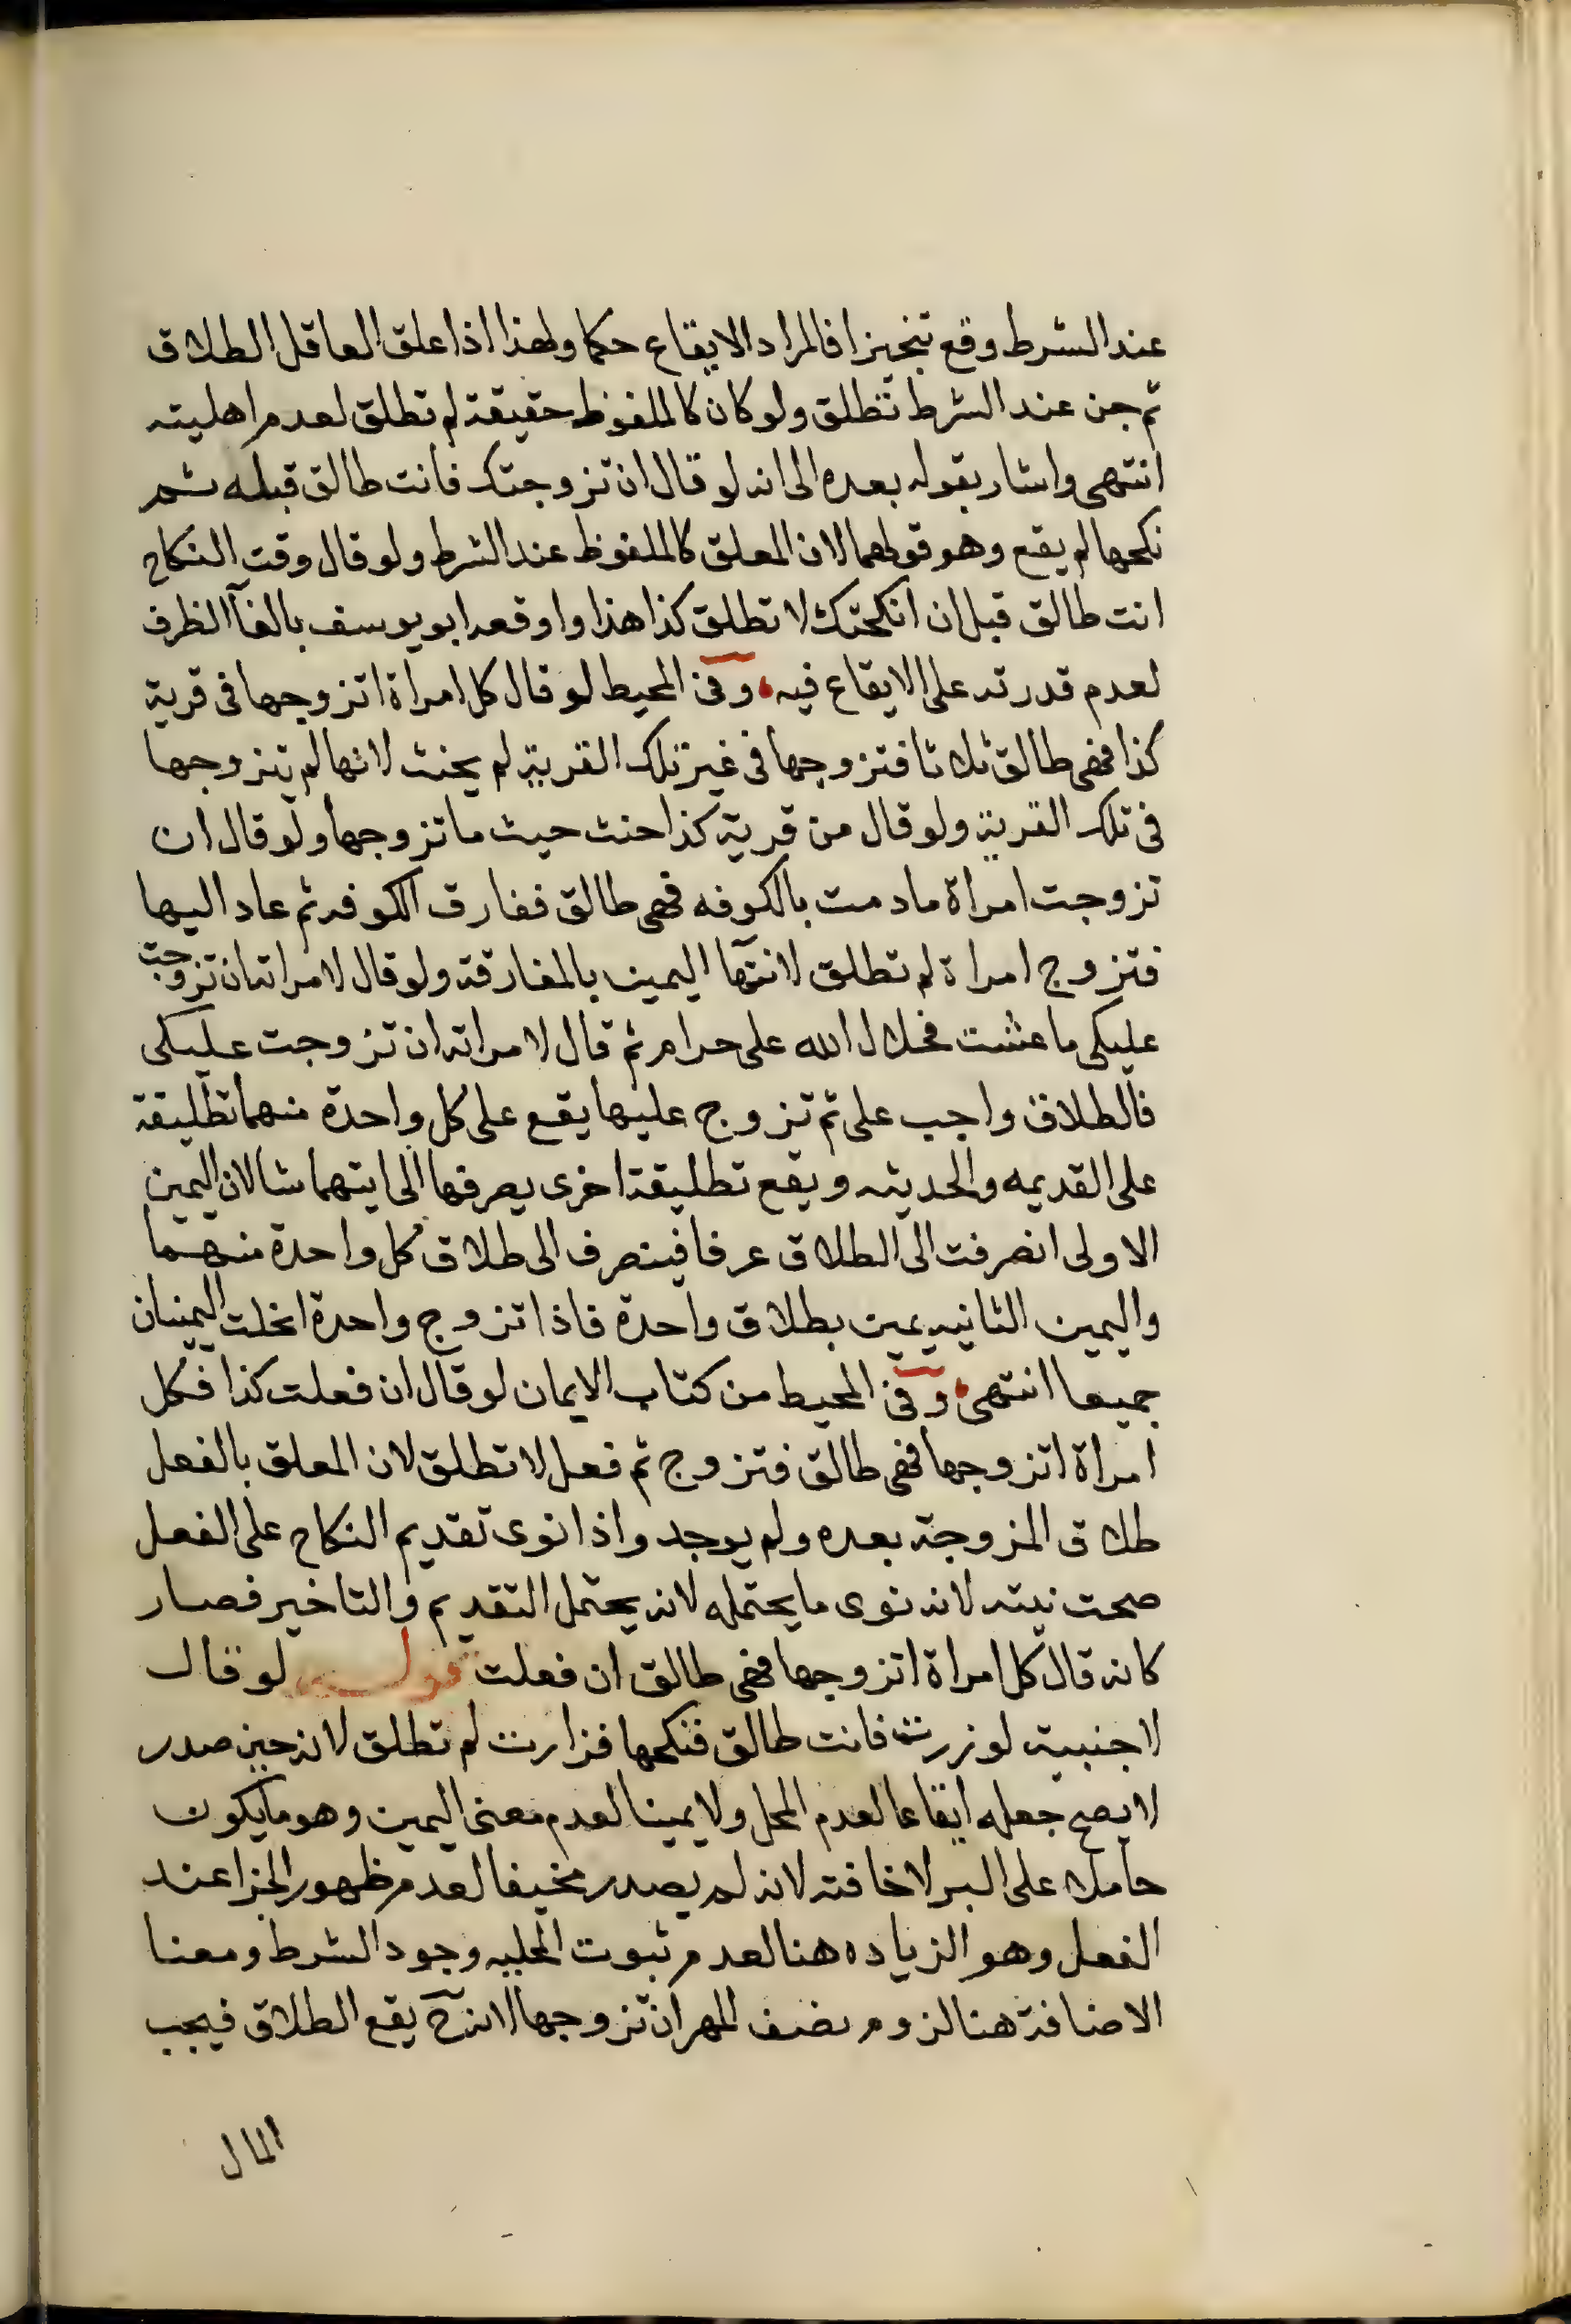 عند الشرط وقع تنجيزا فالمراد الايقاع حكما ولهذا اذا علق العاقل الطلاق
ثم جن عند الشرط تطلق ولو كان كالملفوظ حقيقة لم تطلق لعدم اهليته
انتهى واشار بقوله بعده الى انه لو قال ان تزوجتك فانت طالق قبله ثم
نكحها لم يقع وهو قولهما لان المعلق كالملفوظ عند الشرط ولو قال وقت النكاح
انت طالق قبل ان انكحتك لا تطلق كذا هذا واوقعه ابو يوسف بالغآ الظرف
لعدم قدرته على الايقاع فيه وفي المحيط لو قال كل امراة اتزوجها في قرية
كذا فهى طالق ثلاثا فتزوجها في غير تلك القرية لم يحنث لانها لم يتزوجها
في تلك القرية ولو قال من قرية كذا حنث حيث ما تزوجها ولو قال ان
تزوجت امراة ما دمت بالكوفه فهى طالق ففارق الكوفه ثم عاد اليها
فتزوج امراة لم تطلق لانتهآ اليمين بالمفارقة ولو قال لامراته ان تزوجت
عليكى ما عشت فحلال الله على حرام ثم قال لامراته ان تزوجت عليكى
فالطلاق واجب على ثم تزوج عليها يقع على كل واحدة منهما تطليقة
على القديمه والحديثه ويقع تطليقة اخرى يصرفها الى ايتهما شا لان اليمين
الاولى انصرفت الى الطلاق عرفا فينصرف الى طلاق كل واحدة منهما
واليمين الثانيه يمين بطلاق واحدة فاذا تزوج واحدة انحلت اليمينان
جميعا انتهى وفي المحيط من كتاب الايمان لو قال ان فعلت كذا فكل
امراة اتزوجها فهى طالق فتزوج ثم فعل لا تطلق لان المعلق بالفعل
طلاق المزوجة بعده ولم يوجد واذا نوى تقديم النكاح على الفعل
صحت نيته لانه نوى ما يحتمله لانه يحتمل التقديم والتاخير فصار
كانه قال كل امراة اتزوجها فهى طالق ان فعلت قوله لو قال
لاجنبية لو زرت فانت طالق فنكحها فزارت لم تطلق لانه حين صدر
لا يصح جعله ايقاعا لعدم المحل ولا يمينا لعدم معنى اليمين وهو ما يكون
حاملا على البر لاخافته لانه لم يصدر مخيفا لعدم ظهور الجزا عند
الفعل وهو الزياده هنا لعدم ثبوت المحليه وجود الشرط ومعنا
الاضافة هنا لزوم نصف المهر ان تزوجها لانه ح يقع الطلاق فيجب
المال